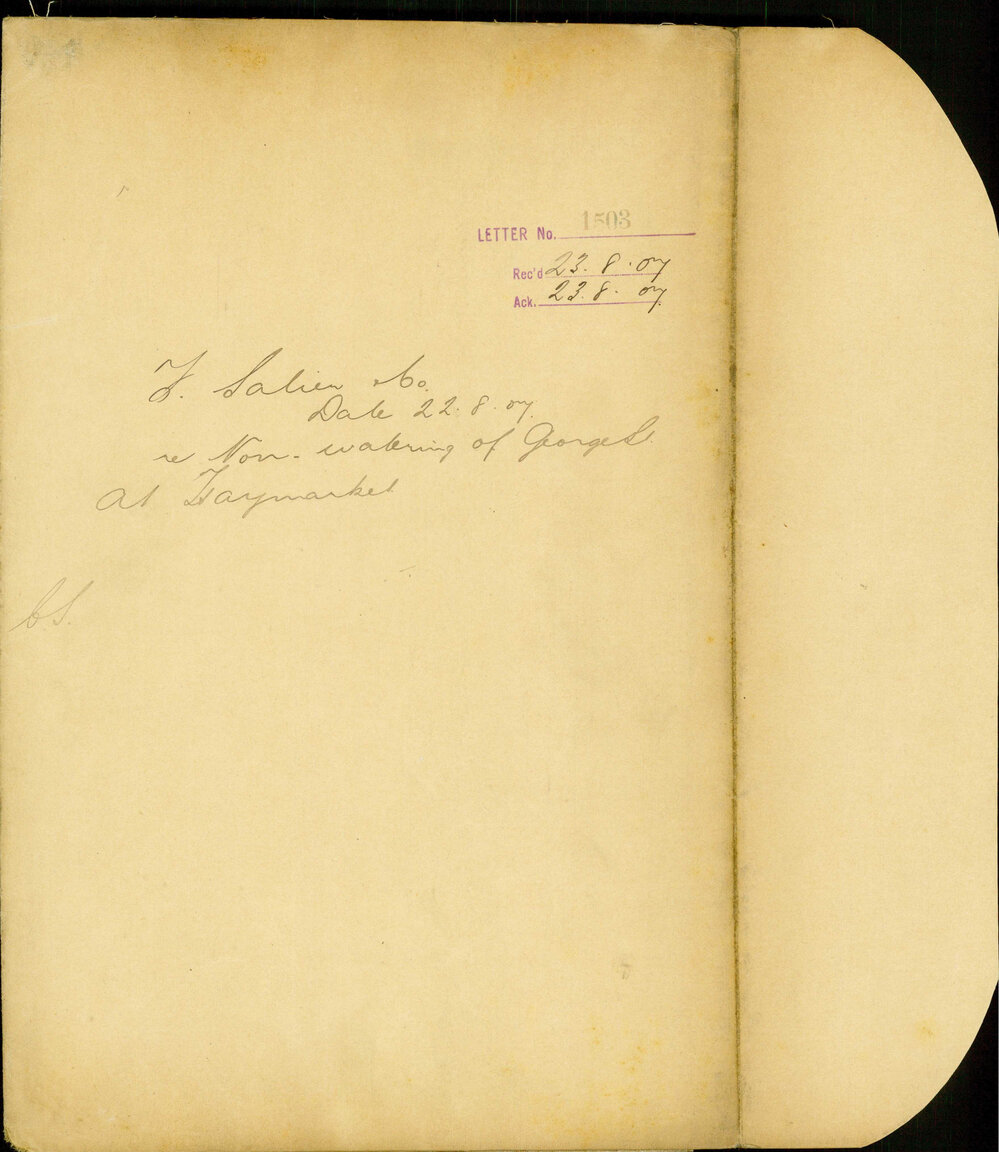 LETTER No. 1503
Rec'd 23. 8. 07
Ack. 23. 8. 07
F. Salien & Co.
Date 22. 8. 07.
re Non-watering of George St.
at Haymarket
C.S.